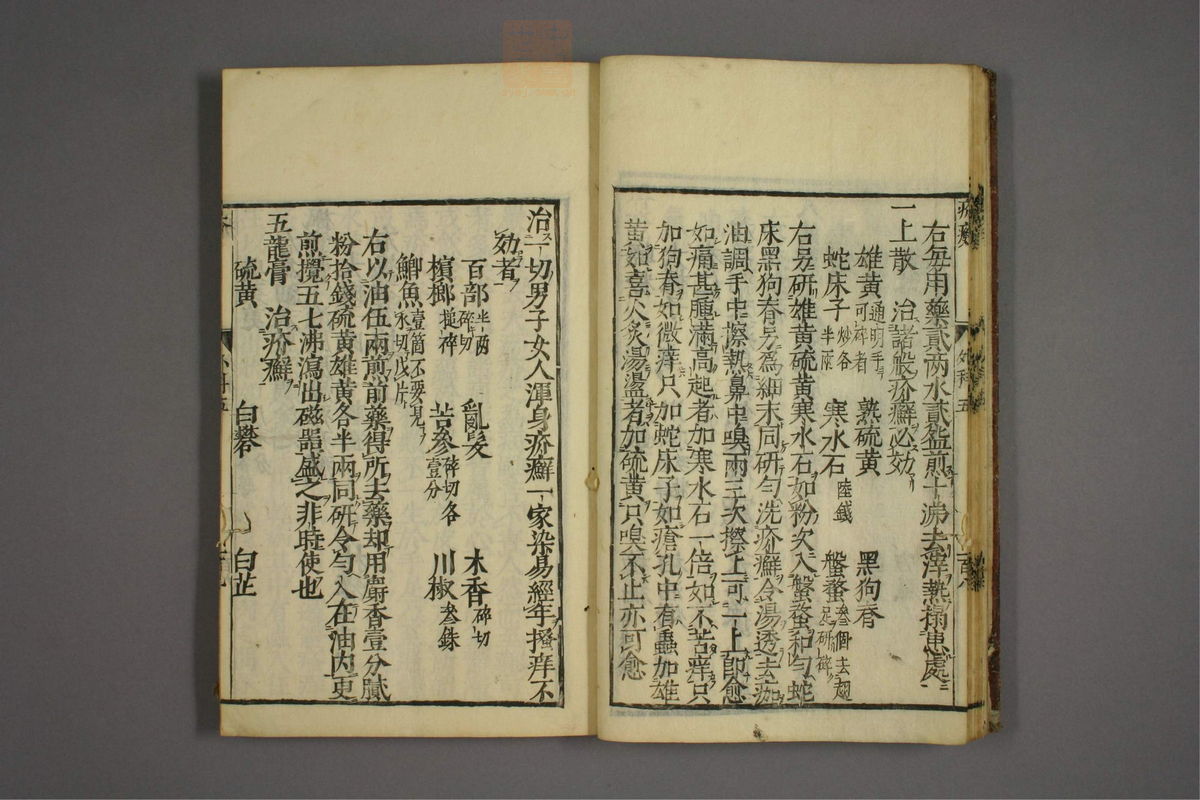 右每用藥貳兩水貳鋺煎十沸去滓熱搨患處
一上散　治諸般疥癬必効
雄黃通明手可碎者　熟硫黃　黑狗脊
蛇床子炒各半兩　寒水石陸錢　蟹蝥叁個去翅足研碎
右另研雄黃硫黃寒水石如粉次入蟹蝥和勻蛇
床黑狗脊另爲細末同研勻洗疥癬令湯透去痂
油調手中擦熱鼻中嗅兩三次擦上可一上即愈
如痛甚腫滿高起者加寒水石一倍如不苦痒只
加狗脊如微痒只加蛇床子如瘡孔中有蟲加雄
黃如喜火炙湯盪者加硫黃只嗅不止亦可愈
治一切男子女人渾身疥癬一家染易經年搔痒不
効者
百部半兩碎切　亂髮　木香碎切
檳榔搥碎　苦參碎切各壹分　川椒叁銖
鯽魚壹箇不要見水切戊片
右以油伍兩煎前藥得所去藥却用麝香壹分膩
粉拾錢硫黃雄黃各半兩同研令勻入在油內更
煎攪五七沸瀉出磁器盛之非時使也
五龍膏　治疥癬
硫黃　白礬　白芷